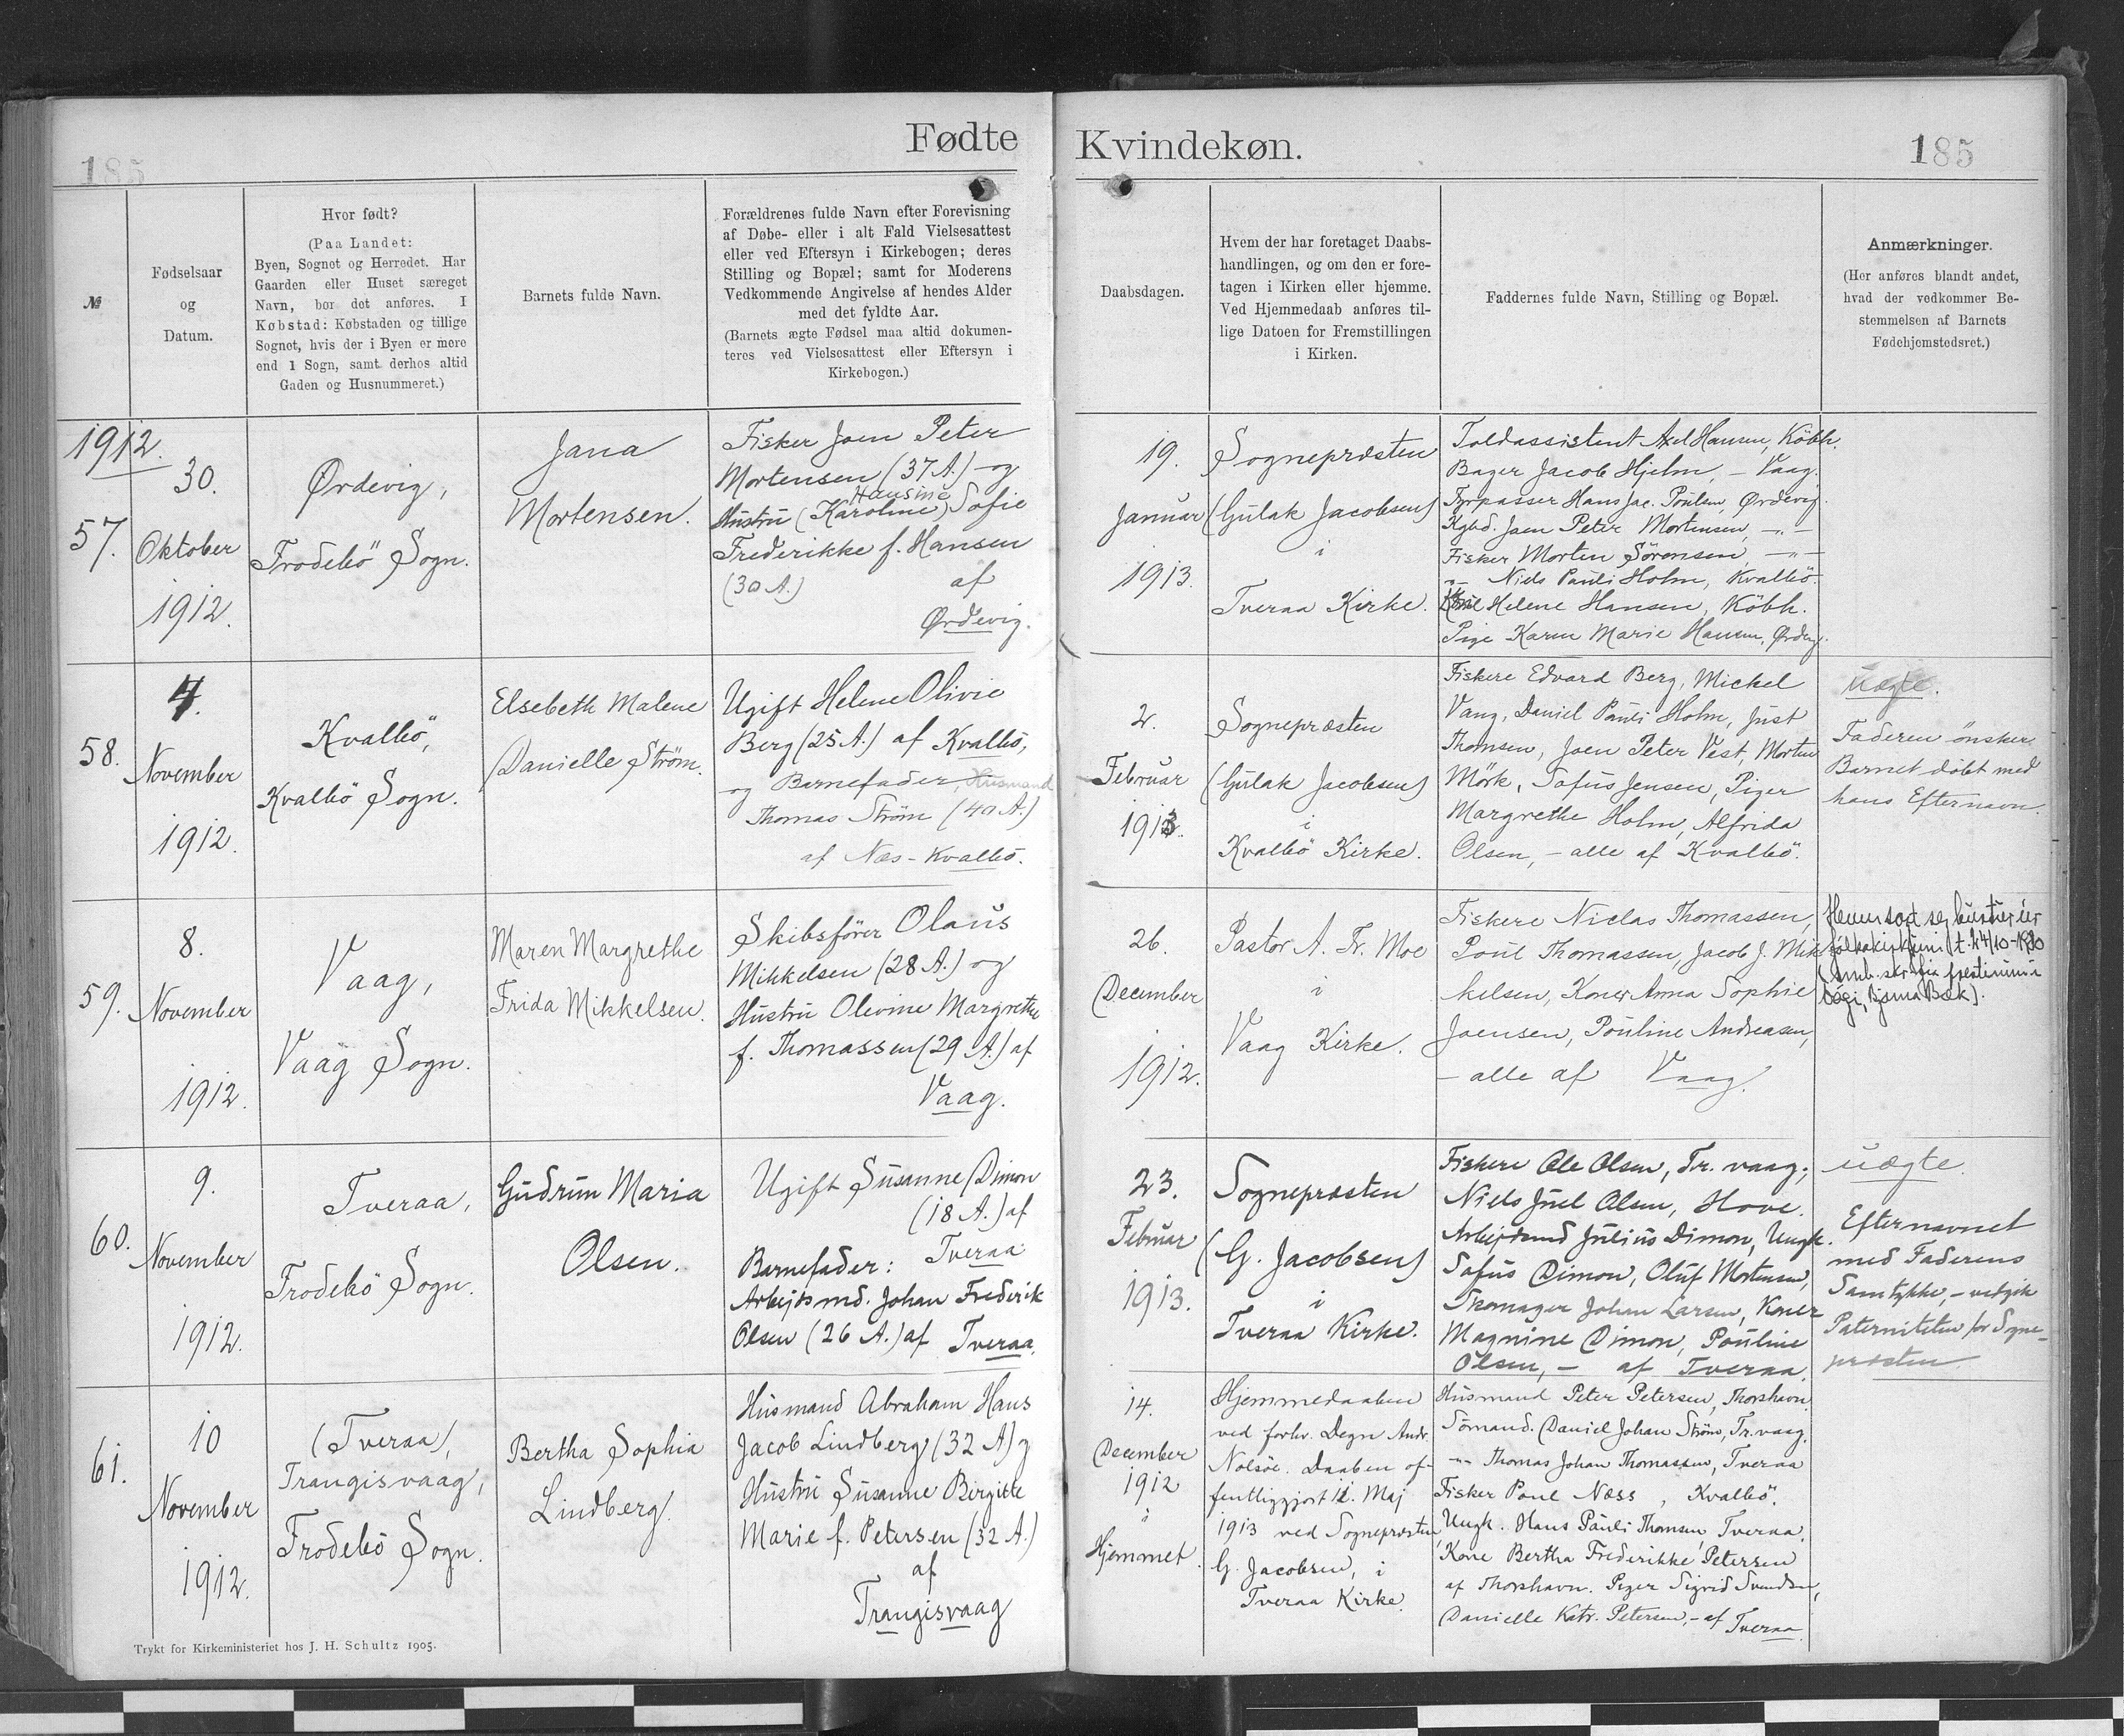 Fødte
Kvindekøn.
185
185
№
Fødselsaar
og
Datum.
Hvor født?
(Paa Landet:
Byen, Sognet og Herredet. Har
Gaarden eller Huset særeget
Navn, bør det anføres. I
Købstad: Købstaden og tillige
Sognet, hvis der i Byen er mere
end 1 Sogn, samt derhos altid
Gaden og Husnummeret.)
Barnets fulde Navn.
Forældrenes fulde Navn efter Forevisning
af Døbe- eller i alt Fald Vielsesattest
eller ved Eftersyn i Kirkebogen; deres
Stilling og Bopæl; samt for Moderens
Vedkommende Angivelse af hendes Alder
med det fyldte Aar.
(Barnets ægte Fødsel maa altid dokumen-
teres ved Vielsesattest eller Eftersyn i
Kirkebogen.)
Daabsdagen.
Hvem der har foretaget Daabs-
handlingen, og om den er fore-
tagen i Kirken eller hjemme.
Ved Hjemmedaab anføres til-
lige Datoen for Fremstillingen
i Kirken.
Faddernes fulde Navn, Stilling og Bopæl.
Anmærkninger.
(Her anføres blandt andet,
hvad der vedkommer Be-
stemmelsen af Barnets
Fødehjemstedsret.)
1912.
57.
30.
Oktober
1912.
Ørdevig,
Frodebö Sogn.
Jana
Mortensen.
Fisker Joen Peter
Mortensen (37 A.) og
Hansine
Hustru (Karoline) Sofie
Frederikke f. Hansen
(30 A.) af
Ørdevig.
19.
Januar
1913.
Sognepræsten
(Gulak Jacobsen)
i
Tveraa Kirke.
Toldassistent Axel Hansen, Köbh.
Bager Jacob Hjelm, - Vaag.
Fyrpasser Hans Jac. Poulsen, Ørdevig.
Kgbd. Joen Peter Mortensen, -"-
Fisker Morten Sörensen, -"-
-"- Niels Pauli Holm, Kvalbö.
Helene Hansen, Köbh.
Pige Karen Marie Hansen, Ørdevig.
58.
4.
November
1912.
Kvalbö,
Kvalbö Sogn.
Elsebeth Malene
Danielle Ström.
Ugift Helene Olivie
Berg (25 A.) af Kvalbö,
og Barnefader, Husmand
Thomas Ström (40 A.)
af Næs-Kvalbö.
2.
Februar
1913.
Sognepræsten
(Gulak Jacobsen)
i
Kvalbö Kirke.
Fiskere Edvard Berg, Mickel
Vang, Daniel Pauli Holm, Just
Thomsen, Joen Peter Vest, Morten
Mörk, Sofus Jensen, Piger
Margrethe Holm, Alfrida
Olsen, - alle af Kvalbö.
uægte.
Faderen önsker
Barnet döbt med
hans Efternavn.
59.
8.
November
1912.
Vaag,
Vaag Sogn.
Maren Margrethe
Frida Mikkelsen.
Skibsförer Olaus
Mikkelsen (28 A.) og
Hustru Olevine Margrethe
f. Thomassen (29 A.) af
Vaag.
26.
December
1912.
Pastor A. Fr. Moe
i
Vaag Kirke.
Fiskere Niclas Thomassen,
Poul Thomassen, Jacob J. Mik-
kelsen, Koner Anna Sophie
Joensen, Pouline Andreasen,
- alle af Vaag.
60.
9.
November
1912.
Tveraa,
Frodebö Sogn.
Gudrun Maria
Olsen.
Ugift Susanne Dimon
(18 A.) af
Tveraa
Barnefader:
Arbejdsmd. Johan Frederik
Olsen (26 A.) af Tveraa.
23.
Februar
1913.
Sognepræsten
(G. Jacobsen)
i
Tveraa Kirke.
Fiskere Ole Olsen, Tr. vaag;
Niels Juel Olsen, Hove.
Arbejdsmd Julius Dimon, Ungk.
Sofus Dimon, Oluf Mortensen,
Skomager Johan Larsen, Koner
Magnine Dimon, Pouline
Olsen, - af Tveraa.
uægte.
Efternavnet
med Faderens
Samtykke, - vedgik
Paterniteten for Sogne-
præsten.
61.
10
November
1912.
(Tveraa),
Trangisvaag,
Frodebö Sogn.
Bertha Sophia
Lindberg.
Husmand Abraham Hans
Jacob Lindberg (32 A) og
Hustru Susanne Birgitte
Marie f. Petersen (32 A.)
af
Trangisvaag
14.
December
1912
i
Hjemmet.
Hjemmedaaben
ved forhv. Degn Andr.
Nolsöe. Daaben of-
fentliggjort 11. Maj
1913 ved Sognepræsten
G. Jacobsen, i
Tveraa Kirke.
Husmand Peter Petersen, Thorshavn.
Sömand. Daniel Johan Ström, Tr.vaag.
-"- Thomas Johan Thomassen, Tveraa
Fisker Poul Næss, Kvalbö.
Ungk. Hans Pauli Thomsen, Tveraa.
Kone Bertha Frederikke Petersen
af Thorshavn. Piger Sigrid Svendsen,
Danielle Katr. Petersen, - af Tveraa.
Trykt for Kirkeministeriet hos J. H. Schultz 1905.